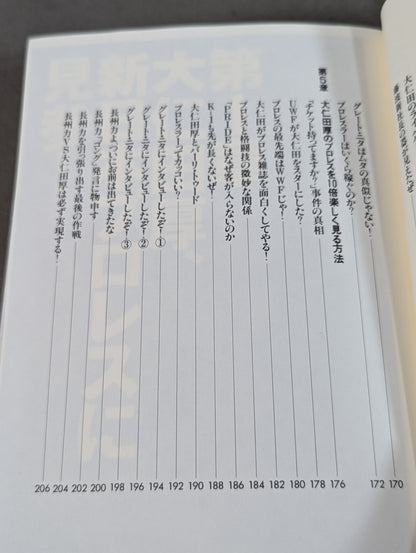 グレートニタはムタの真似じゃない! 170
プロレスラーはいくら稼ぐのか? 172
第5章 大仁田厚のプロレスを10倍楽しく見る方法
「チケット持ってますか?」事件の真相 176
UWFが大仁田をスターにした? 178
プロレスの最先端はWWFじゃ! 180
大仁田がプロレス雑誌を面白くしてやる! 182
プロレスと格闘技の微妙な関係 184
「PRIDE」はなぜ客が入らないのか 186
K-1も先が長くないぜ! 188
大仁田厚とバーリトゥード 190
プロレスラーってカッコいい? 192
グレートニタにインタビューしたぞ!① 194
グレートニタにインタビューしたぞ!② 196
グレートニタにインタビューしたぞ!③ 198
長州力よ、ついにお前は出てきたな 200
長州力「ゴング」発言に物申す 202
長州力を引っ張り出す最後の作戦 204
長州力VS大仁田厚は必ず実現する! 206